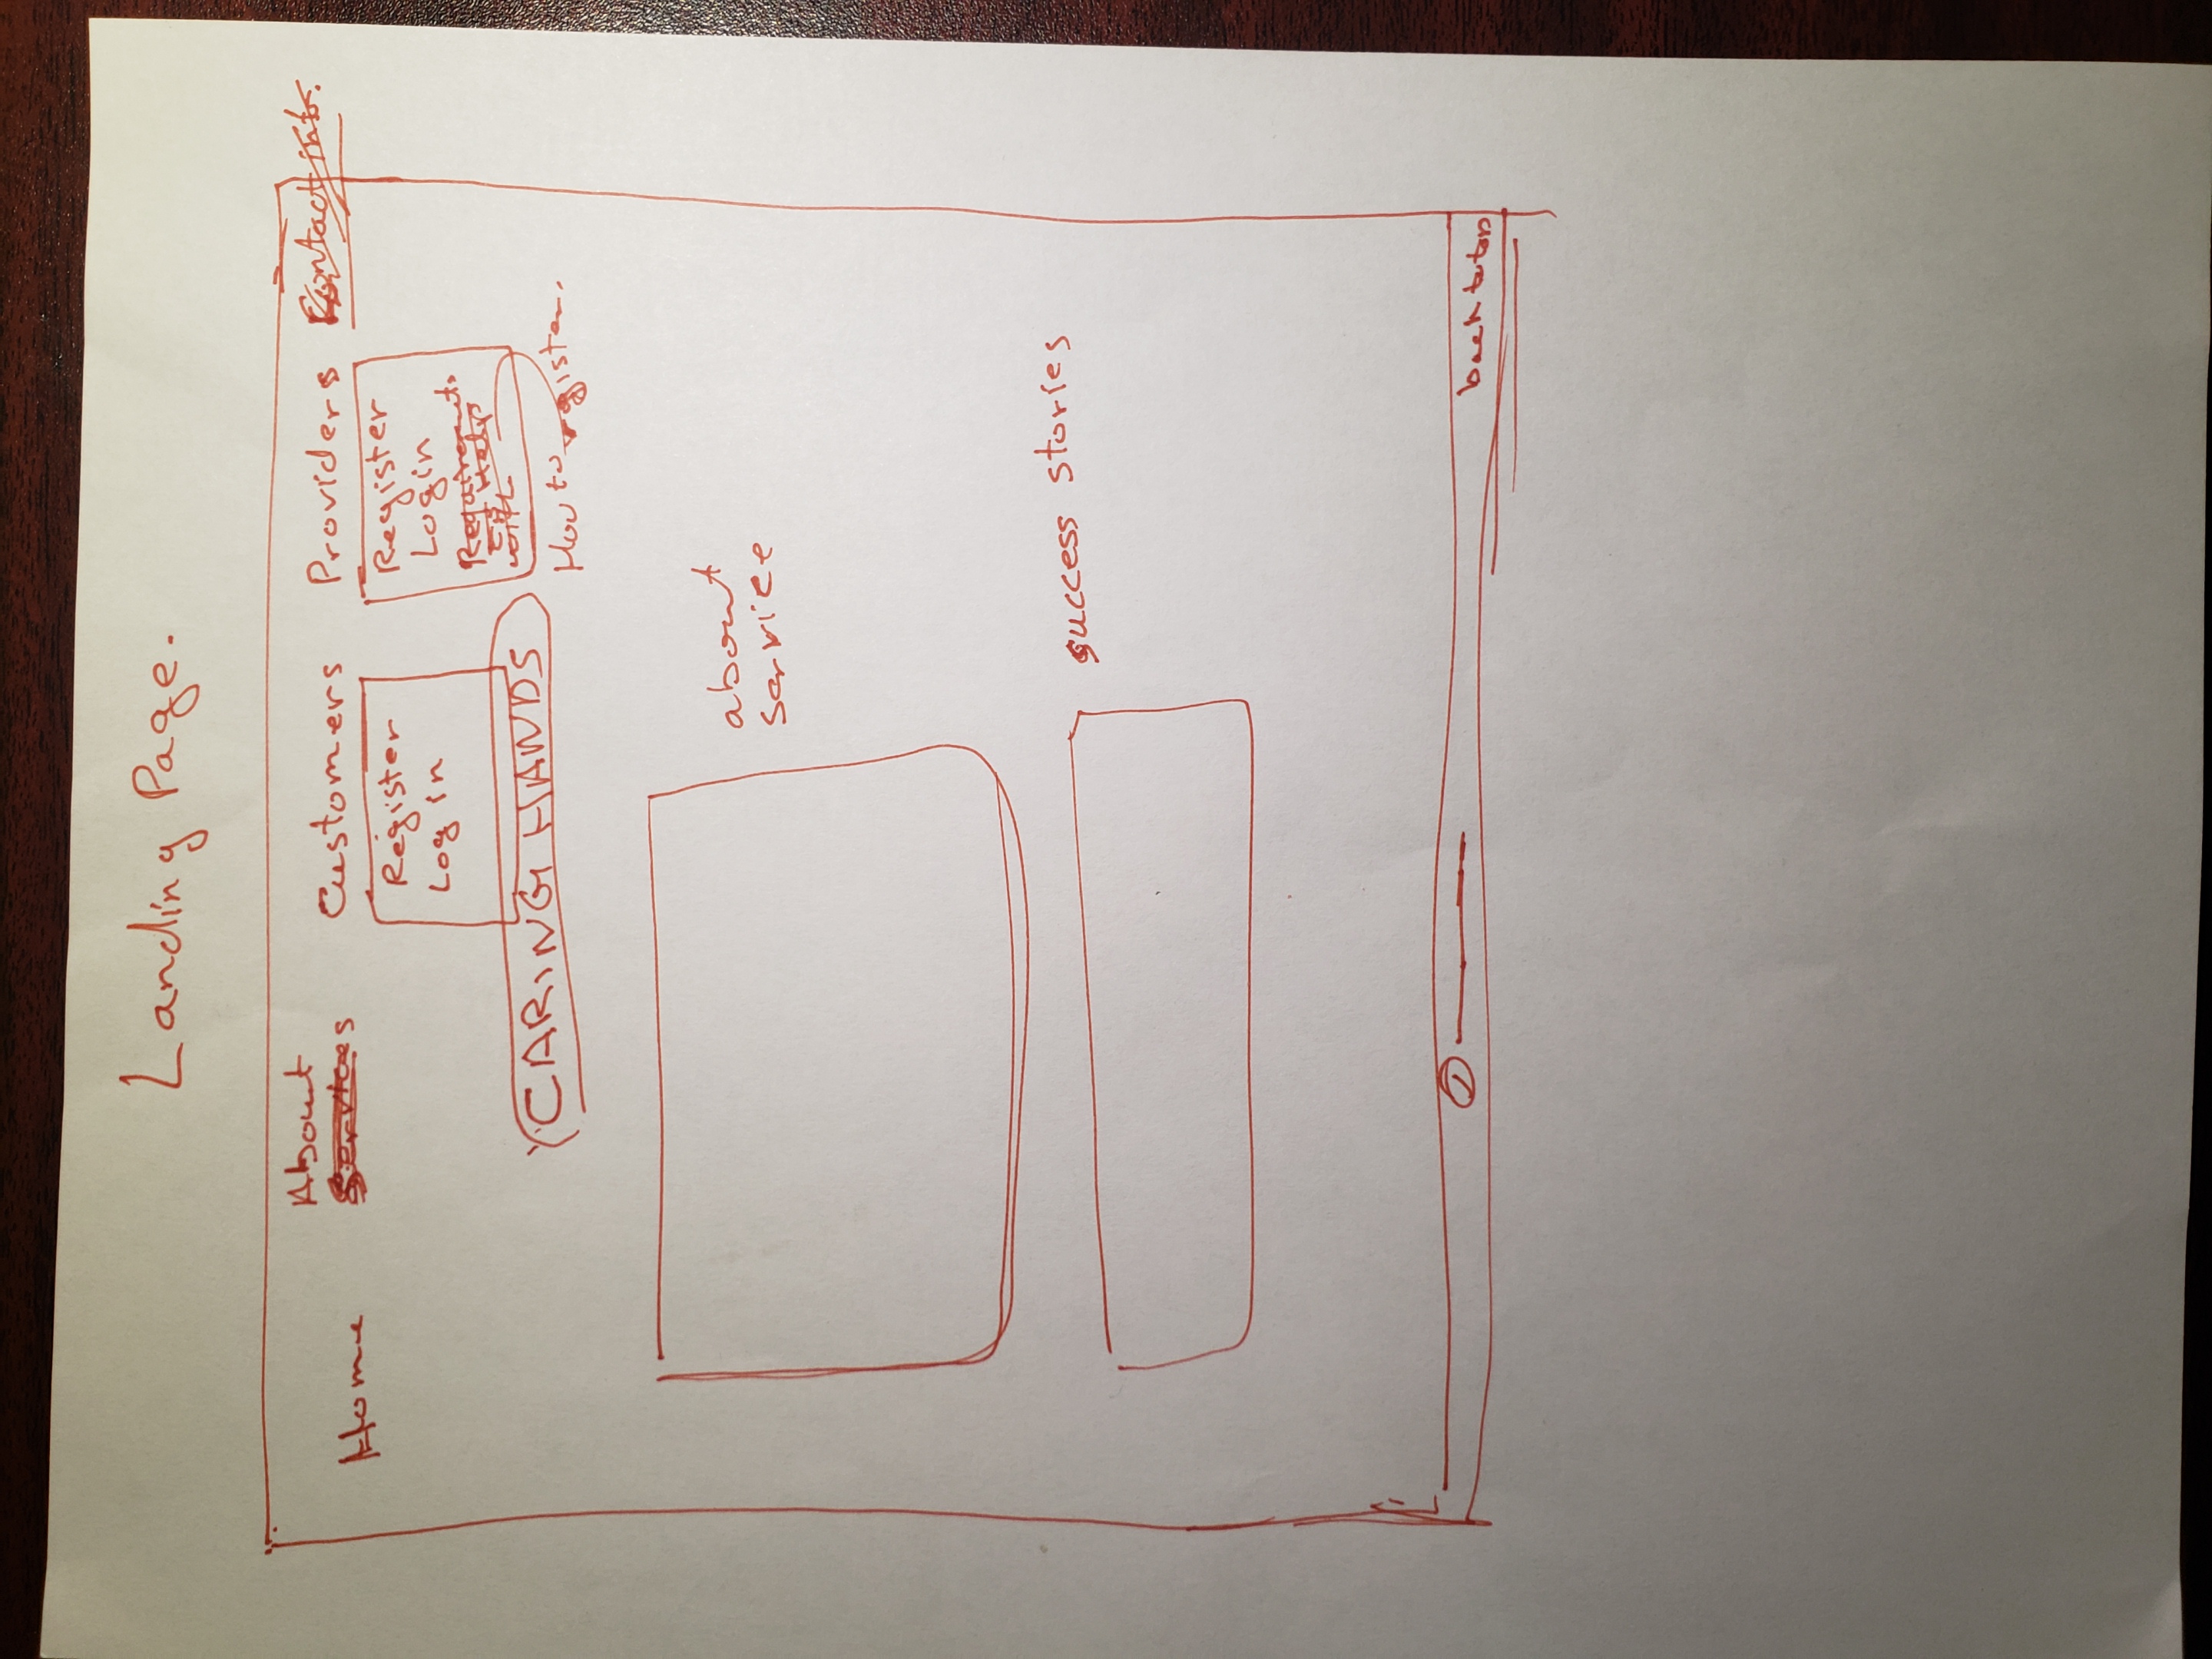 Landing Page.
Home
About
Services
Customers
Register
Log in
Providers
Register
Login
Requirements
Help
with
How to register.
Contact info.
CARING HANDS
about
service
success stories
back to top